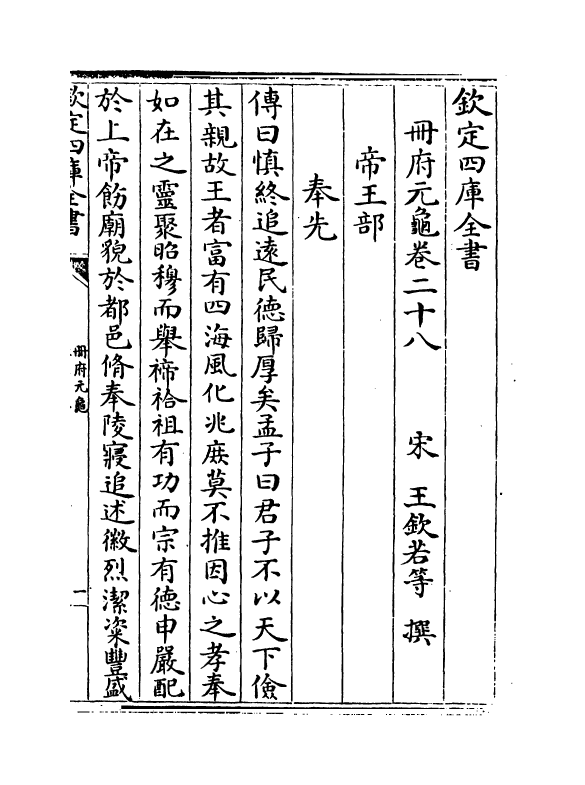 欽定四庫全書
冊府元龜卷二十八　宋　王欽若等　撰
帝王部
奉先
傳曰慎終追逺民德歸厚矣孟子曰君子不以天下儉
其親故王者富有四海風化兆庶莫不推因心之孝奉
如在之靈聚昭穆而舉禘祫祖有功而宗有德申嚴配
於上帝飭廟貌於都邑脩奉陵寢追述徽烈潔粢豐盛
欽定四庫全書
冊府元龜